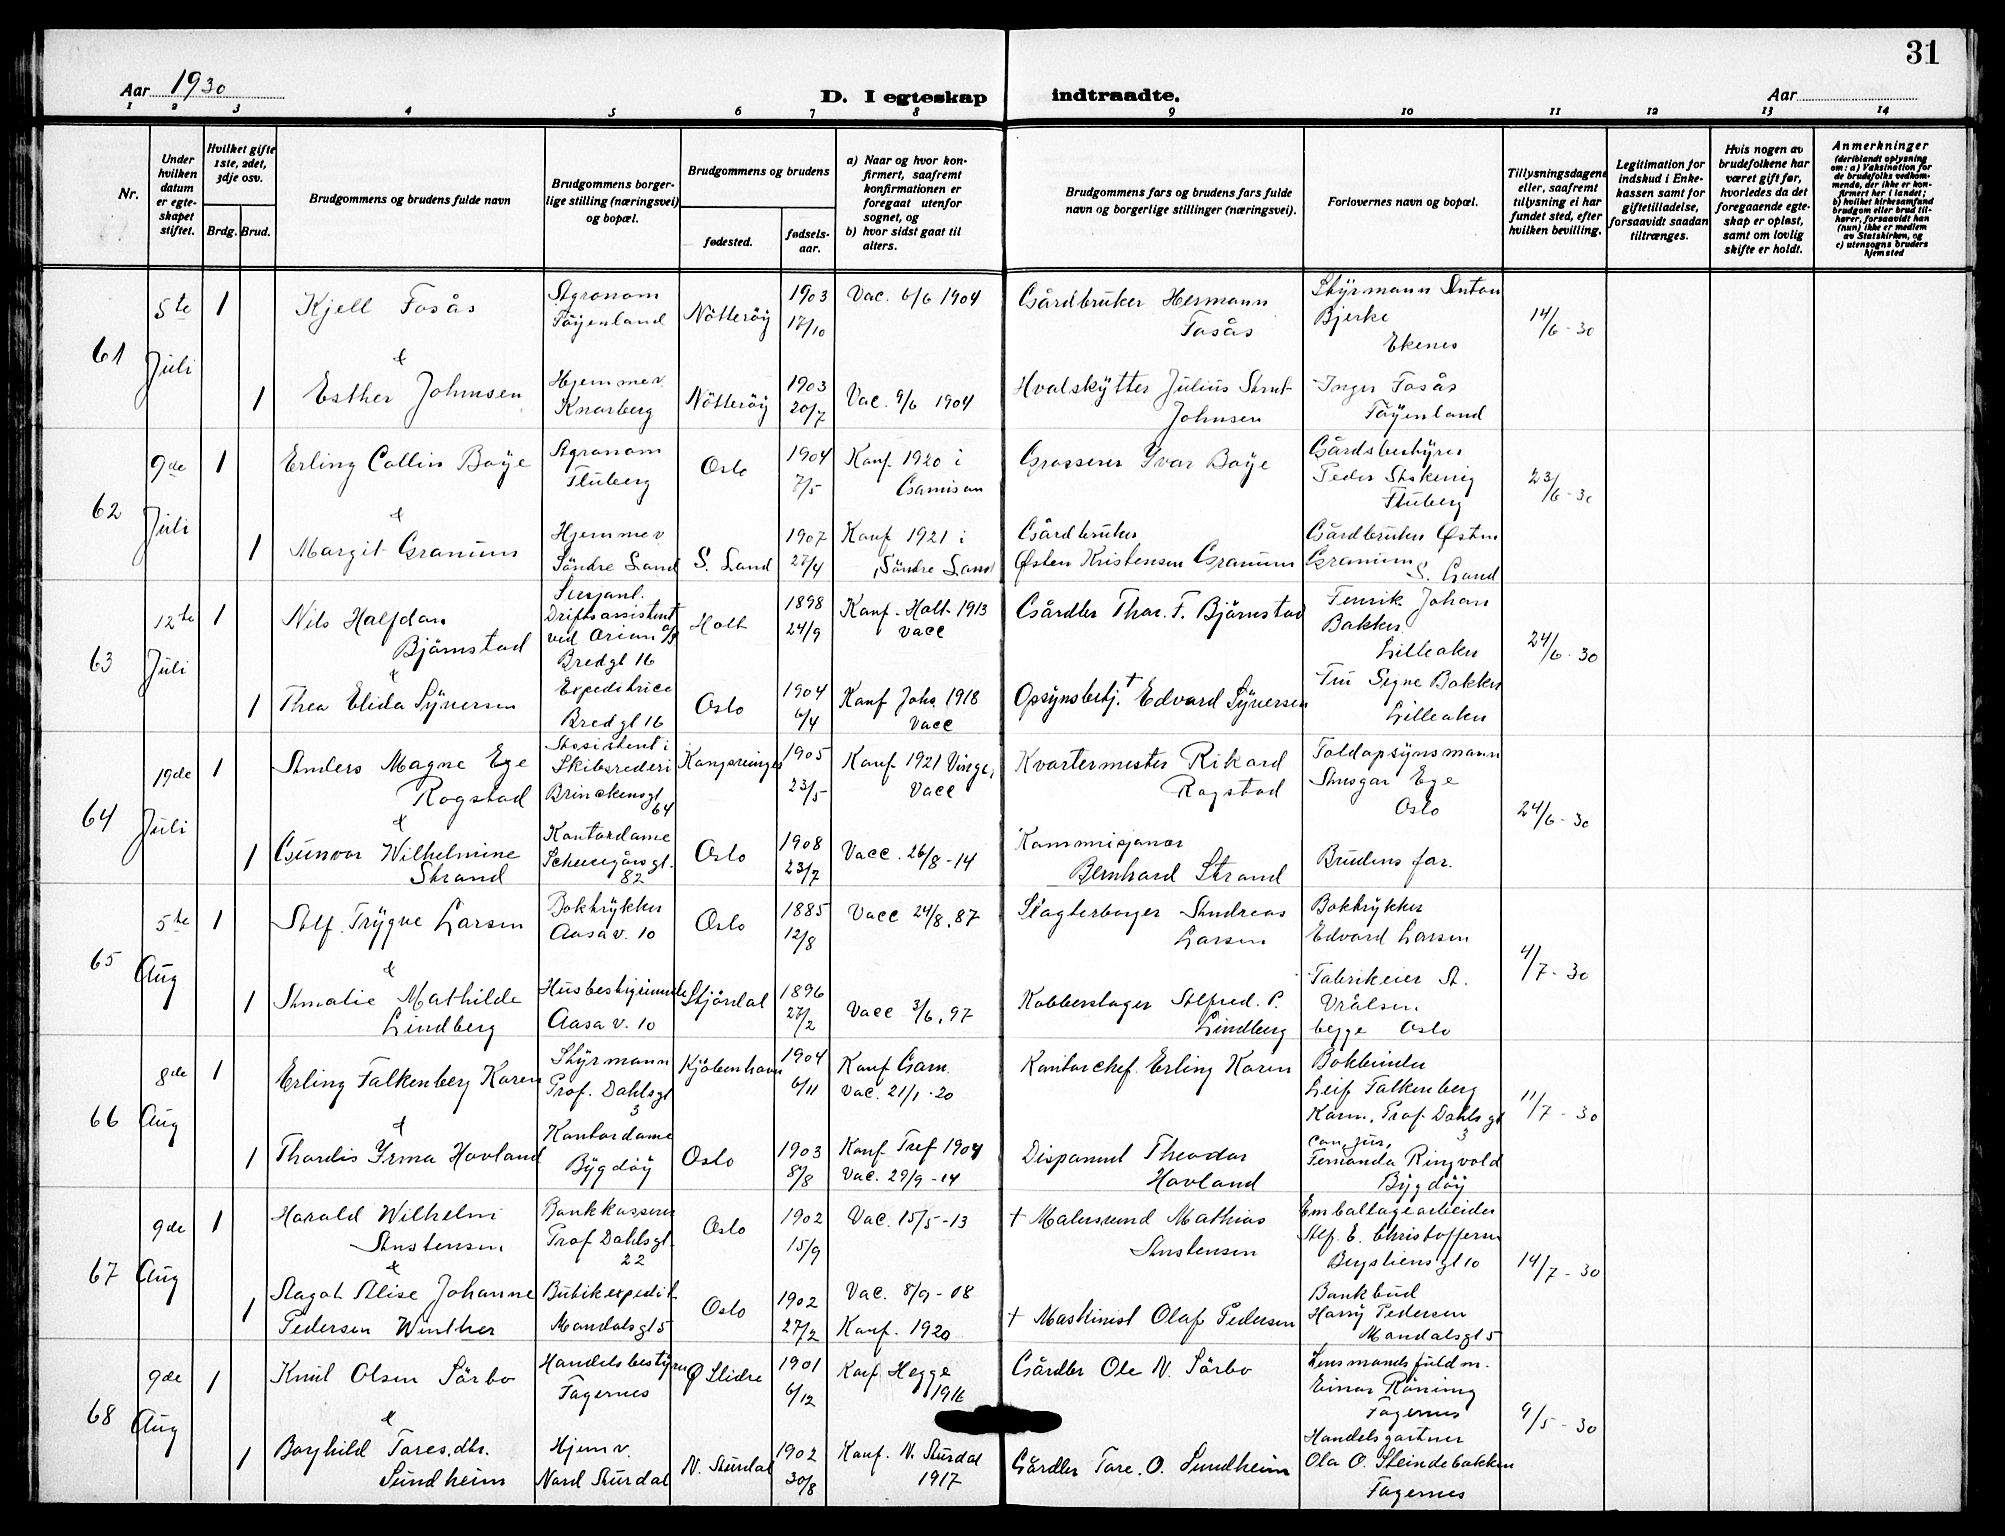 31
Aar 1930
D. I egteskap indtraadte.
Aar
1 2 3 4 5 6 7 8 9 10 11 12 13 14
Nr.
Under hvilken datum er egteskapet stiftet.
Hvilket gifte 1ste, 2det, 3dje osv.
Brdg. Brud.
Brudgommens og brudens fulde navn
Brudgommens borgerlige stilling (næringsvei) og bopæl.
Brudgommens og brudens
fødested.
fødselsaar.
a) Naar og hvor konfirmert, saafremt konfirmationen er foregaat utenfor sognet, og
b) hvor sidst gaat til alters.
Brudgommens fars og brudens fars fulde navn og borgerlige stillinger (næringsvei).
Forlovernes navn og bopæl.
Tillysningsdagene eller, saafremt tillysning ei har fundet sted, efter hvilken bevilling.
Legitimation for indskud i Enkekassen samt for giftetilladelse, forsaavidt saadan tiltrænges.
Hvis nogen av brudefolkene har været gift før, hvorledes da det foregaaende egteskap er opløst, samt om lovlig skifte er holdt.
Anmerkninger
(deriblandt oplysning om: a) Vaksination for de brudefolks vedkommende, der ikke er konfirmert her i landet; b) hvilket kirkesamfund brudgom eller brud tilhører, forsaavidt han (hun) ikke er medlem av Statskirken, og c) utensogns bruders hjemsted
61
5te Juli
1
Kjell Fosås
Agronom
Föyenland
Nötteröy
1903
17/10
Vac. 6/6 1904
Gårdbruker Hermann
Fosås
Styrmann Anton
Bjerke
Ekenes
14/6 - 30
&
1
Esther Johnsen
Hjemmev.
Knarberg
Nötteröy
1903
20/7
Vac. 9/6 1904
Hvalskytter Julius Arnt
Johnsen
Inger Fosås
Föyenland
62
9de Juli
1
Erling Collin Boye
Agronom
Fluberg
Oslo
1904
7/5
Konf. 1920 i
Grosserer Yvar Boye
Gårdsbestyrer
Peder
Fluberg
23/6 - 30
&
1
Margit Granum
Hjemmev
Söndre Land
S. Land
1907
27/4
Konf 1921 i
Söndre Land
Gårdbruker
Østen Kristensen Granum
Gårdbruker Østen
Granum
S. Land
63
12te Juli
1
Nils Halfdan
Björnstad
Driftsassistent
ved Orion A/S
Bredgt 16
Holt
1898
24/9
Konf. Holt 1913
vacc
Gårdbr Thor. F. Björnstad
Fenrik Johan
Bakker
Lilleaker
24/6 - 30
&
1
Thea Elida Syversen
Expeditrice
Bredgt 16
Oslo
1904
6/4
Konf Johs 1918
Vacc
Opsynsbetj. † Edvard Syversen
Fru Signe Bakker
Lilleaker
64
19de Juli
1
Anders Magne Ege
Rogstad
Assistent i
Skibsrederi
Brinckensgt
64
Kongsvinger
1905
23/5
Konf 1921 Vinger
Vacc
Kvartermester Rikard
Rogstad
Toldopsynsmann
Ansgar Ege
Oslo
24/6 - 30
&
1
Gunvor Wilhelmine
Strand
Kontordame
Schweigårsgt.
82
Oslo
1908
23/7
Vacc. 26/8 - 14
Kommisjonær
Bernhard Strand
Brudens far.
65
5te Aug
1
Alf. Trygve Larsen
Boktrykker
Aasa v. 10
Oslo
1885
12/8
Vacc 24/8. 87
Slagterborger Andreas
Larsen
Boktrykker
Edvard Larsen
4/7 - 30
&
1
Amalie Mathilde
Lindberg
Husbestyrerinde
Aasa v. 10
Stjördal
1896
27/2
Vacc 3/6. 97
Kobberslager Alfred. P.
Lindberg
Fabrikeier A.
Vrålsen
begge Oslo
66
8de Aug
1
Erling Falkenberg Koren
Styrmann
Prof. Dahlsgt
3
Kjöbenhavn
1904
6/11
Konf Garn.
Vac. 21/1 - 20
Kontorchef. Erling Koren
Bokbinder
Leif Falkenberg
Koren, Prof Dahls gt
3
11/7 - 30
&
1
Thordis Yrma Hovland
Kontordame
Bygdöy
Oslo
1903
8/8
Konf Tref 1904
Vac. 29/9 - 14
Disponent Theodor
Hovland
can. jur.
Fernanda Ringvold
Bygdöy
67
9de Aug
1
Harald Wilhelm
Anstensen
Bankkasserer
Prof Dahlsgt.
22
Oslo
1902
15/9
Vac. 15/5 - 13
† Malersvend Mathias
Anstensen
Emballagearbeider
Alf. E. Christoffersen
Bergsliensgt 10
14/7 - 30
&
1
Aagot Alise Johanne
Pedersen Winther
Butikexpedit
Mandalsgt 5
Oslo
1902
27/2
Vac. 8/9 - 08
Konf. 1920
† Maskinist Olaf Pedersen
Bankbud
Harry Pedersen
Mandalsgt 5
68
9de Aug
1
Knut Olsen Sörbo
Handelsbestyrer
Fagernes
Ø Slidre
1901
6/12
Konf Hegge
1916
Gårdbr Ole N. Sörbo
Lensmandsfuldm.
Einar Röning
Fagernes
9/5 - 30
&
1
Borghild Toresdtr.
Sundheim
Hjem v.
Nord Aurdal
N. Aurdal
1902
30/8
Konf. N. Aurdal
1917
Gårdbr Tore. O. Sundheim
Handelsgartner
Ola O. Steindebakken
Fagernes